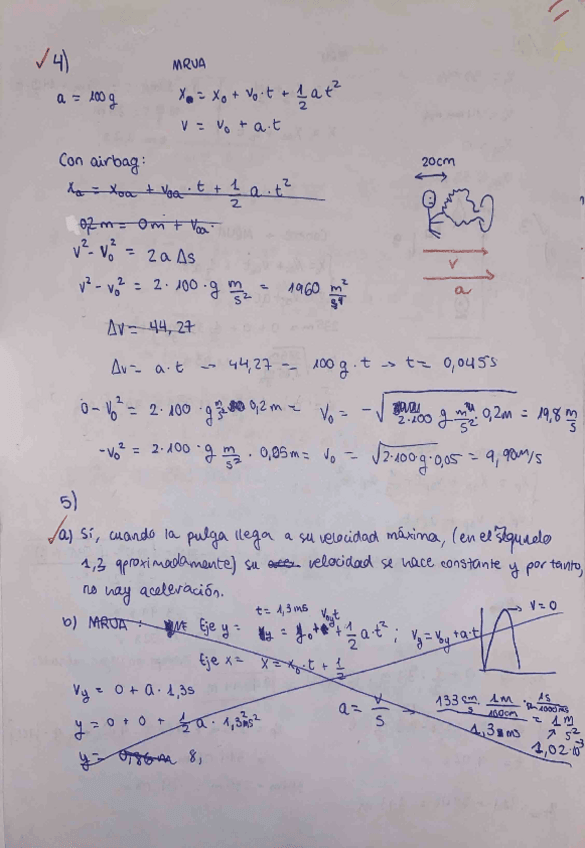 4)
MRUA
a = 100g
x = x₀ + v₀·t + 1/2 a t²
v = v₀ + a·t
Con airbag:
20cm
xa = x0a + v0a · t + 1/2 a · t²
0,2 m = 0 m + v0a
v² - v₀² = 2 a Δs
v
a
v² - v₀² = 2 · 100 · g m/s² = 1960 m²/s⁴
Δv = 44,27
Δv = a·t → 44,27 = 100 g · t → t = 0,045s
0 - v₀² = 2 · 100 · g m/s² 0,2 m = v₀ = -√2·100 g m/s² 0,2m = 19,8 m/s
-v₀² = 2 · 100 · g m/s² · 0,05m = v₀ = √2·100·g·0,05 = 9,90m/s
5)
a) Sí, cuando la pulga llega a su velocidad máxima, (en el segundo
1,3 aproximadamente) su velocidad se hace constante y por tanto,
no hay aceleración.
b) MRUA: Eje y = y₀ + v0y t + 1/2 a·t² ; vy = v0y + a·t
t = 1,3 ms
v = 0
Eje x = x = x₀ · t + 1/2
vy = 0 + a · 1,3s
a = v/s → 133 cm/s · 1m/100cm · 1s/1000ms / 1,3 ms = 1 m/s²
y = 0 + 0 + 1/2 a · 1,3² ms²
1,02·10⁻³
y = 0,86 m 8,